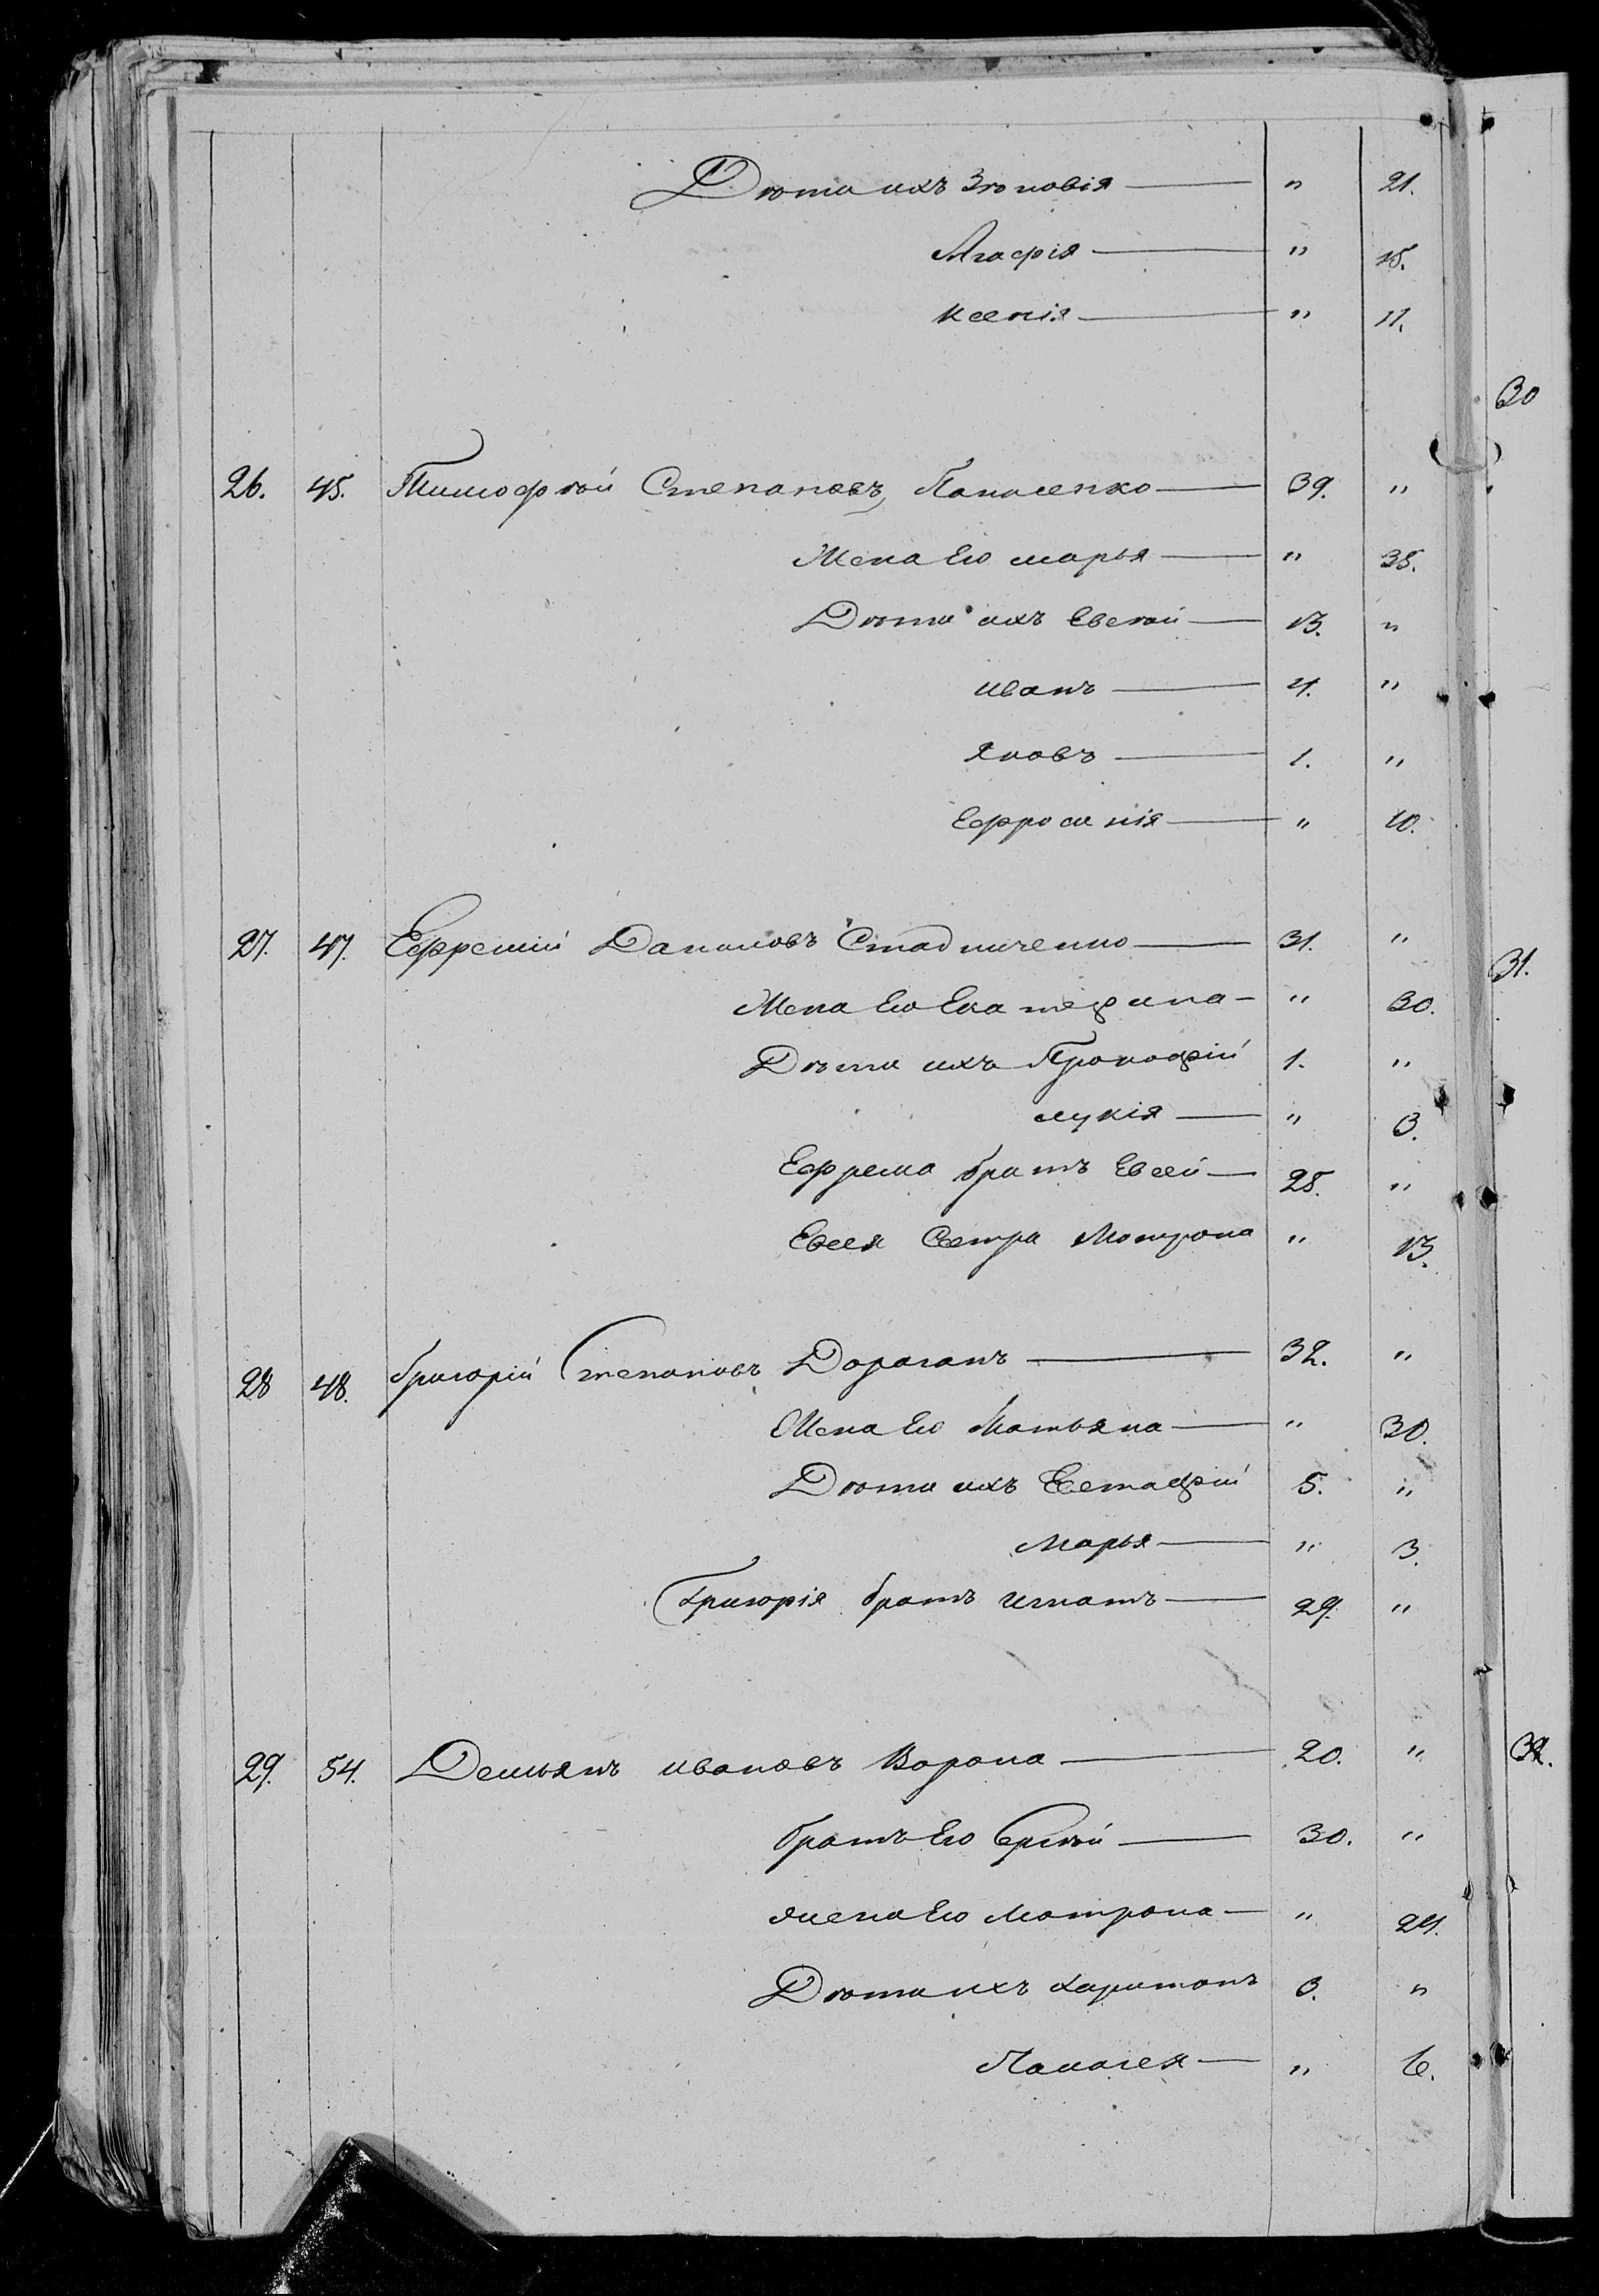 Дѣти ихъ Зѣновія — " 21.
Агафія — " 15.
Ксенія — " 11.
26. 45. Тимофѣй Степановъ Панасенко — 39. "
Жена Его марья — " 38.
Дѣти ихъ Евсѣй — 13. "
иванъ — 4. "
Яковъ — 1. "
Ефросинія — " 10.
27. 47. Ефремій Даниловъ Стадниченко — 31. "
Жена Его Екатерина — " 30.
Дѣти ихъ Прокофій 1. "
лукія — " 3.
Ефрема братъ Евсей — 25. "
Евсея Сестра Матрона " 13.
28 48. григорій Степановъ Дораганъ — 32. "
Жена Его Татьяна — " 30.
Дѣти ихъ Евстафій 5. "
Марья — " 3.
Григорія братъ игнатъ — 29. "
29. 54. Демьянъ ивановъ Ворона — 20. "
братъ Его Сергѣй — 30. "
жена Его Матрона — " 24.
Дѣти ихъ харитонъ 3. "
Палагея — " 6.
30
31.
32.